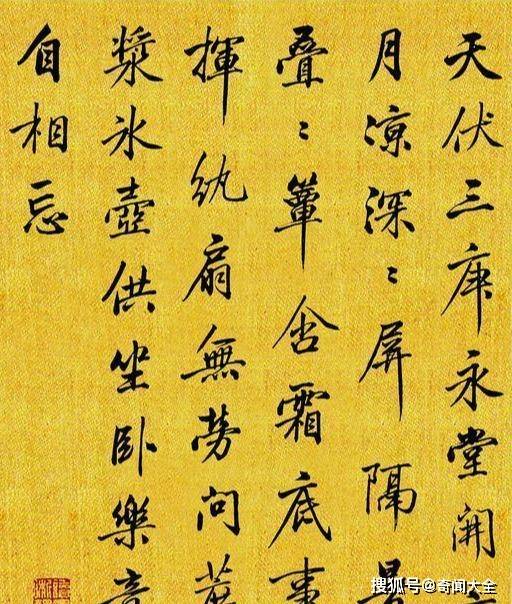 天伏三庚永堂開
月涼深〻屏隔
叠〻簟含霜底事
揮紈扇無勞問蔗
漿冰壺供坐卧樂意
自相忘
搜狐号@奇闻大全